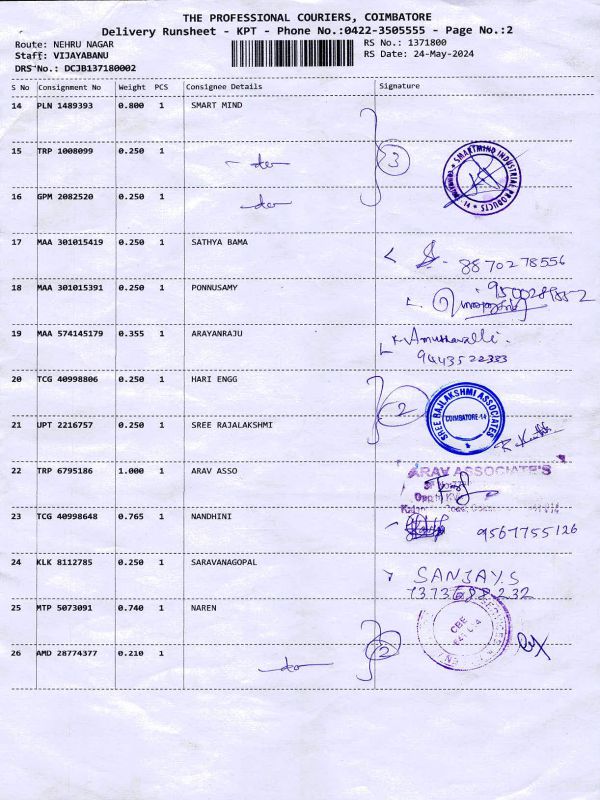 THE PROFESSIONAL COURIERS, COIMBATORE
Delivery Runsheet - KPT - Phone No.:0422-3505555 - Page No.:2
Route: NEHRU NAGAR
RS No.: 1371800
Staff: VIJAYABANU
RS Date: 24-May-2024
DRS No.: DCJB137180002
S No Consignment No Weight PCS Consignee Details Signature
14 PLN 1489393 0.800 1 SMART MIND
15 TRP 1008099 0.250 1 - do - 3 SMARTMIND INDUSTRIAL PRODUCTS
16 GPM 2082520 0.250 1 - do -
17 MAA 301015419 0.250 1 SATHYA BAMA 8870278556
18 MAA 301015391 0.250 1 PONNUSAMY
19 MAA 574145179 0.355 1 ARAYANRAJU K Amuthavalli
9443522333
20 TCG 40998806 0.250 1 HARI ENGG 2 SREE RAJLAKSHMI ASSOCIATES
COIMBATORE-14
21 UPT 2216757 0.250 1 SREE RAJALAKSHMI
22 TRP 6795186 1.000 1 ARAV ASSO ARAV ASSOCIATE'S
23 TCG 40998648 0.765 1 NANDHINI 9567755126
24 KLK 8112785 0.250 1 SARAVANAGOPAL SANJAY.S
25 MTP 5073091 0.740 1 NAREN CBE
26 AMD 28774377 0.210 1 - do - 2